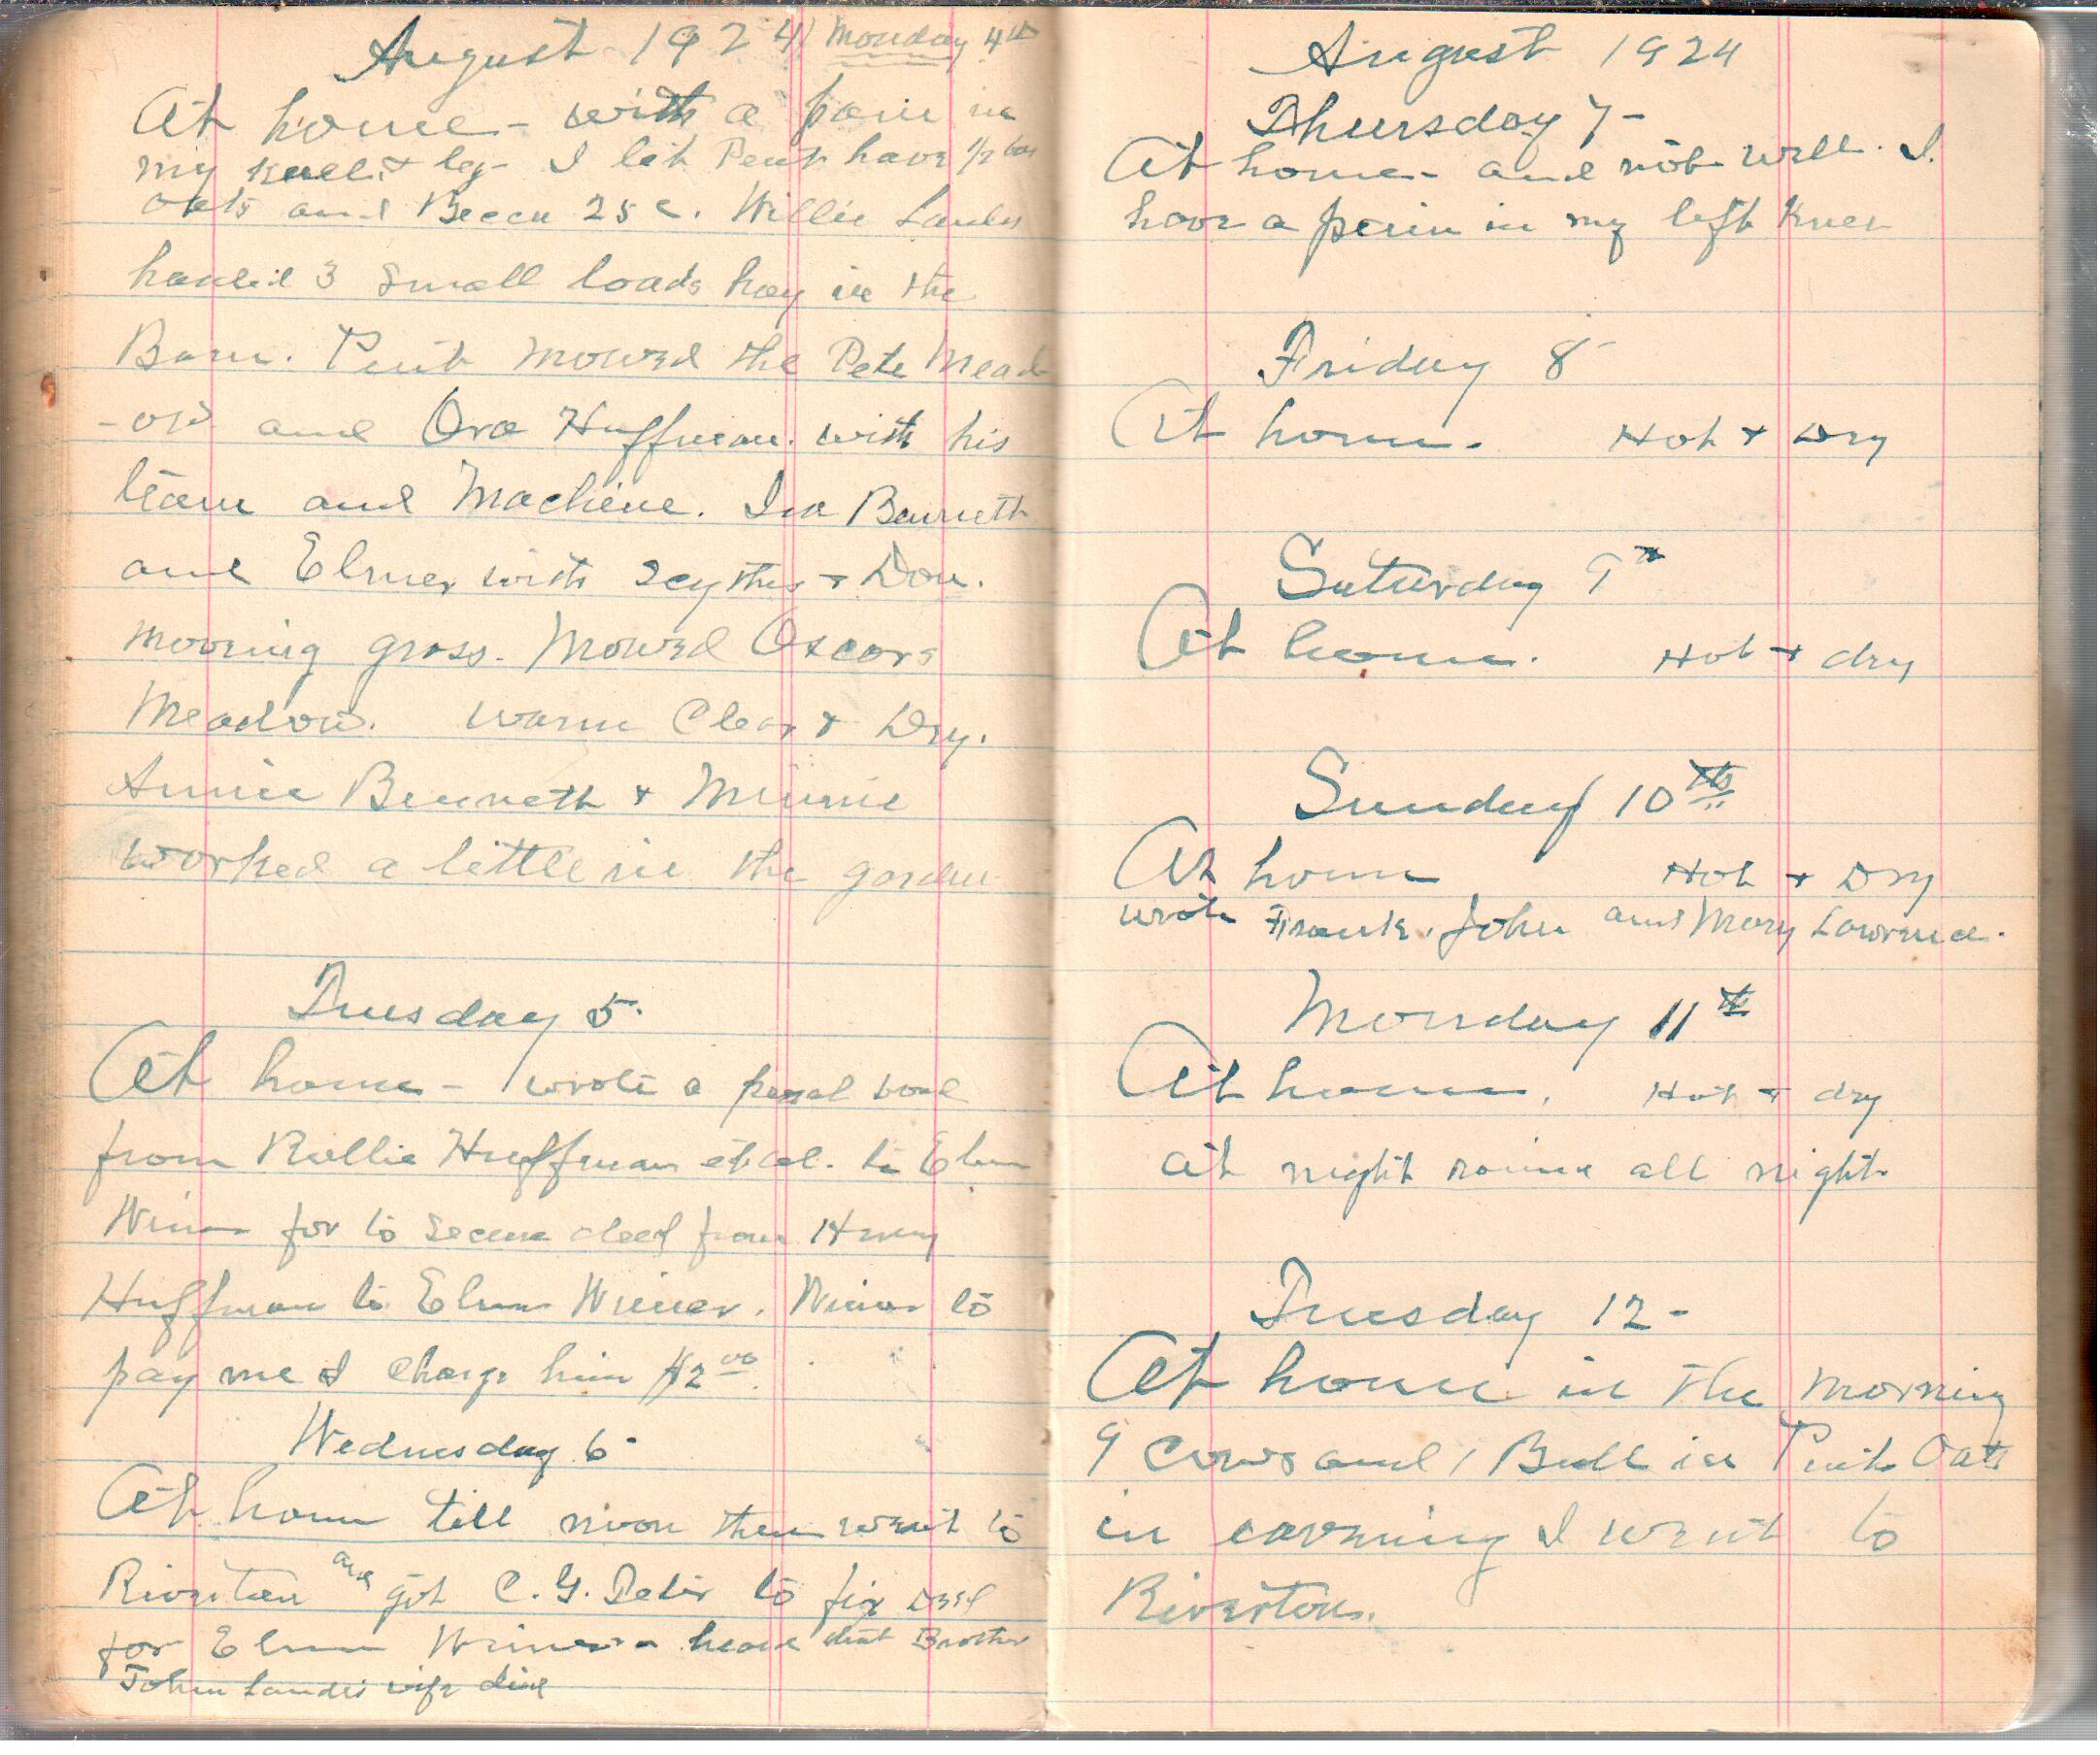 August 1924 Monday 4th
At home - with a pain in
my knee & leg - I let Peut have 1/2 bus
oats and Becca 25 c. Willie Landis
hauled 3 small loads hay in the
Barn. Peut mowed the Pete Mead
-ow and Ora Huffman. with his
team and Machine. Ira Bennett
and Elmer with scythes & Don.
mowing grass. Mowed Oscars
Meadow. warm Clear & Dry.
Annie Bennett & Minnie
worked a little in the garden
Tuesday 5.
At home - wrote a
from Rollie Huffman et al. to Elmer
Winer for to secure deed from Henry
Huffman to Elmer Winer. Winer to
pay me I charge him $2.00
Wednesday 6-
At home till noon then went to
Riverton and got C. G. Peter to fix Deed
for Elmer Winer - heard that Brother
John Landis wife died
August 1924
Thursday 7-
At home - and not well. I.
have a pain in my left knee
Friday 8-
At home. Hot & Dry
Saturday 9th
At home. Hot & dry
Sunday 10th
At home Hot & Dry
wrote Frank, John and Mary Lawrence.
Monday 11th
At home. Hot & dry
at night raine all night
Tuesday 12-
At home in the morning
9 Cows and 1 Bull in Peuts Oats
in eavening I went to
Riverton.